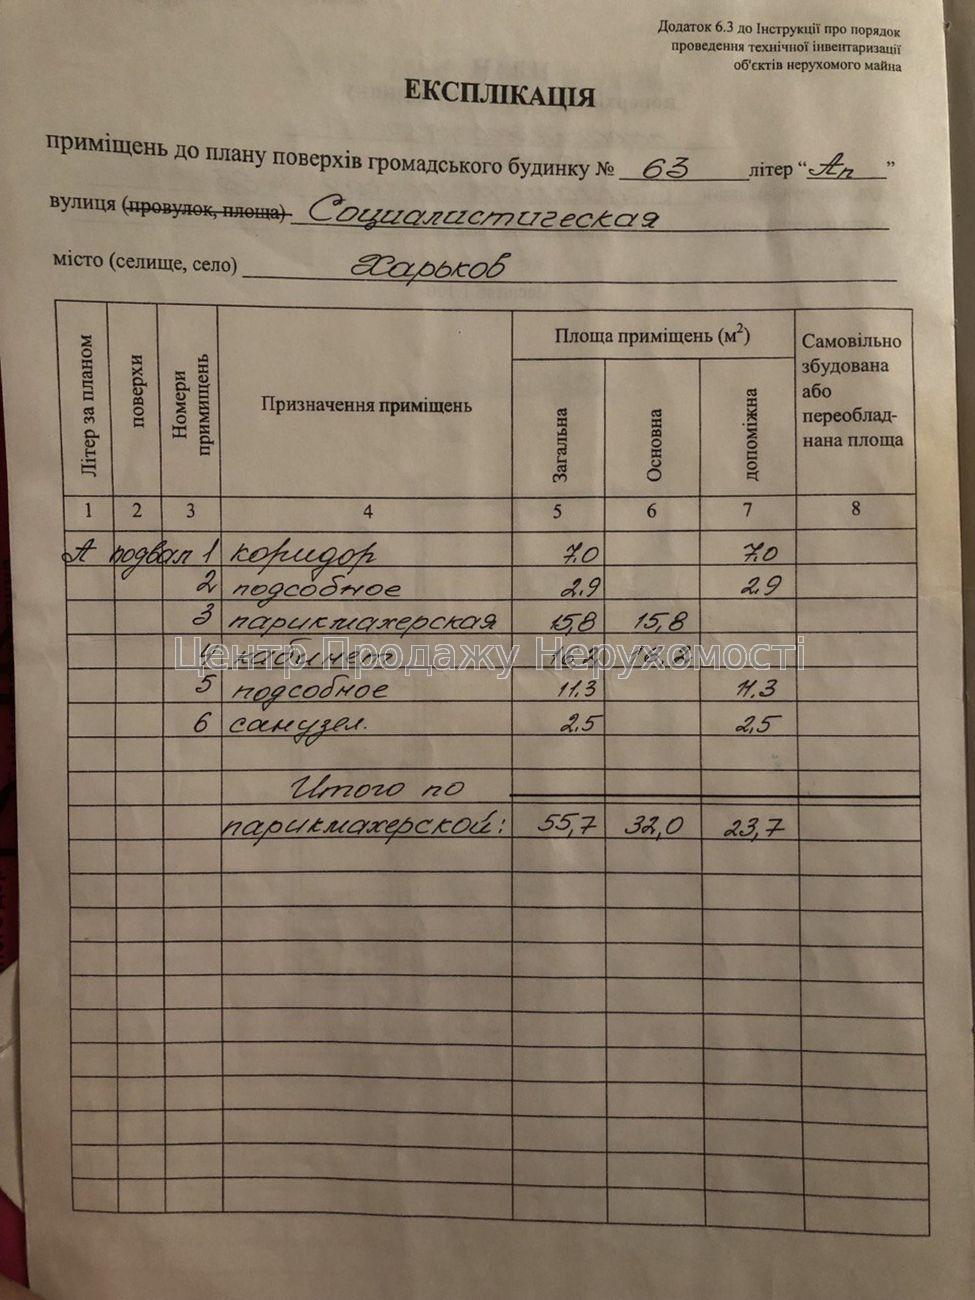 Додаток 6.3 до Інструкції про порядок
проведення технічної інвентаризації
об'єктів нерухомого майна
ЕКСПЛІКАЦІЯ
приміщень до плану поверхів громадського будинку № 63 літер “Ап”
вулиця (провулок, площа) Социалистическая
місто (селище, село) Харьков
Літер за планом
поверхи
Номери примищень
Призначення приміщень
Площа приміщень (м2)
Загальна
Основна
допоміжна
Самовільно
збудована
або
переоблад-
нана площа
1 2 3 4 5 6 7 8
А подвал 1 коридор 7.0 7.0
2 подсобное 2.9 2.9
3 парикмахерская 15,8 15,8
4 кабинет 16.2 16.2
Центр Продажу Нерухомості
5 подсобное 11.3 11.3
6 санузел. 2,5 2,5
Итого по
парикмахерской: 55,7 32,0 23,7